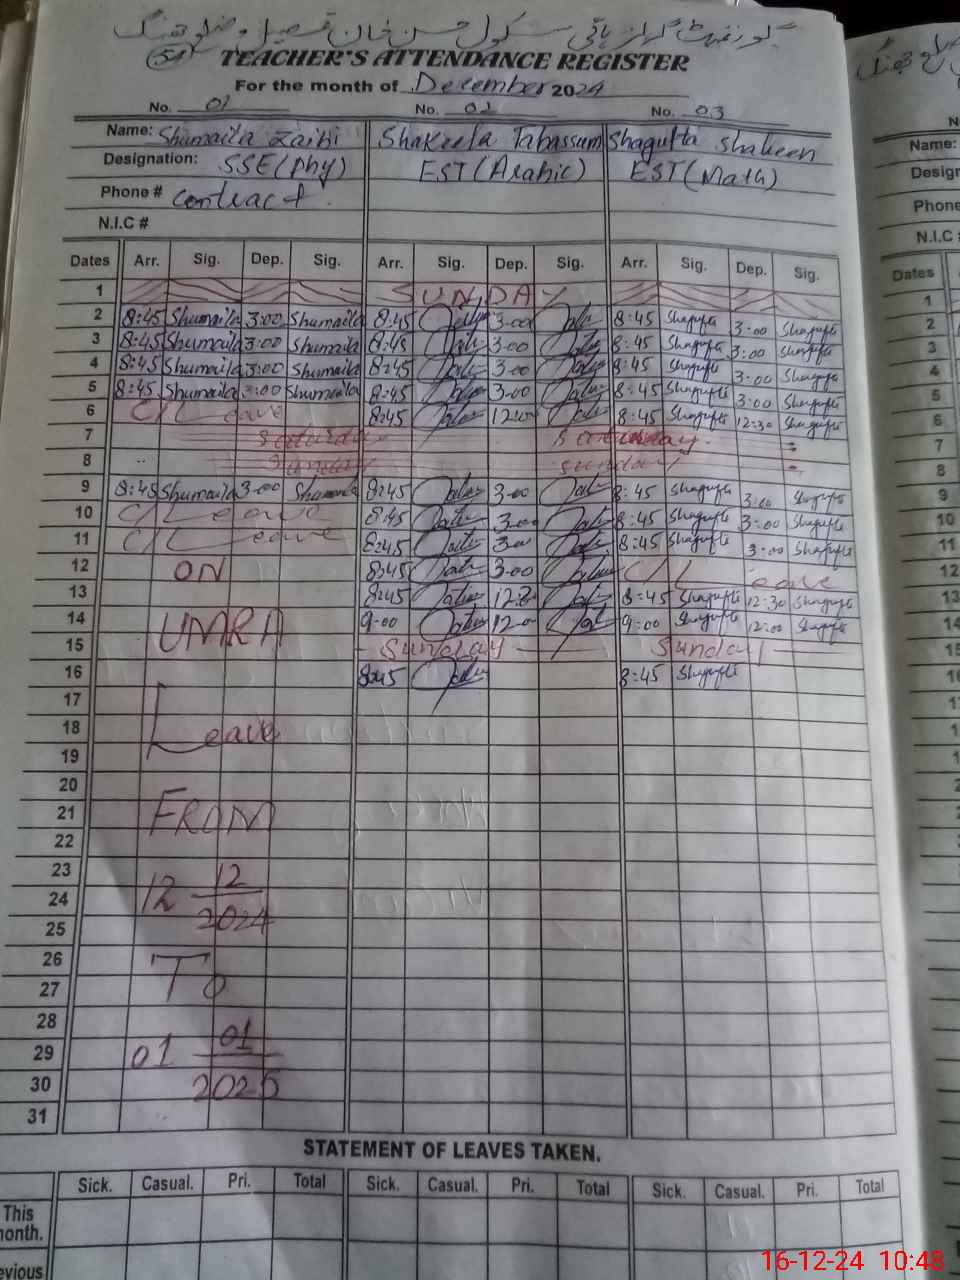 گورنمنٹ گرلز ہائی سکول حسن خان تحصیل و ضلع جھنگ
TEACHER'S ATTENDANCE REGISTER
For the month of December 2024
No. 01 No. 02 No. 03
Name: Shumaila Zaibi Shakeela Tabassum Shagufta Shaheen
Designation: SSE(Phy) EST(Arabic) EST(Math)
Phone # contract
N.I.C #
Dates Arr. Sig. Dep. Sig. Arr. Sig. Dep. Sig. Arr. Sig. Dep. Sig.
1 SUNDAY
2 8:45 Shumaila 3:00 Shumaila 8:45 3:00 8:45 Shagufta 3:00 Shagufta
3 8:45 Shumaila 3:00 Shumaila 8:45 3:00 8:45 Shagufta 3:00 Shagufta
4 8:45 Shumaila 3:00 Shumaila 8:45 3:00 8:45 Shagufta 3:00 Shagufta
5 8:45 Shumaila 3:00 Shumaila 8:45 3:00 8:45 Shagufta 3:00 Shagufta
6 C/Leave 8:45 8:45 Shagufta 12:30 Shagufta
7 Saturday Saturday
8 Sunday Sunday
9 8:45 Shumaila 3:00 Shumaila 8:45 3:00 8:45 Shagufta 3:00 Shagufta
10 C/Leave 8:45 3:00 8:45 Shagufta 3:00 Shagufta
11 C/Leave 8:45 3:00 8:45 Shagufta 3:00 Shagufta
12 ON 8:45 3:00 C/Leave
13 8:45 8:45 Shagufta 12:30 Shagufta
14 UMRA 9:00 9:00 Shagufta 12:00 Shagufta
15 Sunday Sunday
16 8:45 8:45 Shagufta
17
18 Leave
19
20
21 FROM
22
23
24 12 12/2024
25
26
27 To
28
29 01 01/2025
30
31
STATEMENT OF LEAVES TAKEN.
Sick. Casual. Pri. Total Sick. Casual. Pri. Total Sick. Casual. Pri. Total
This
month.
16-12-24 10:48